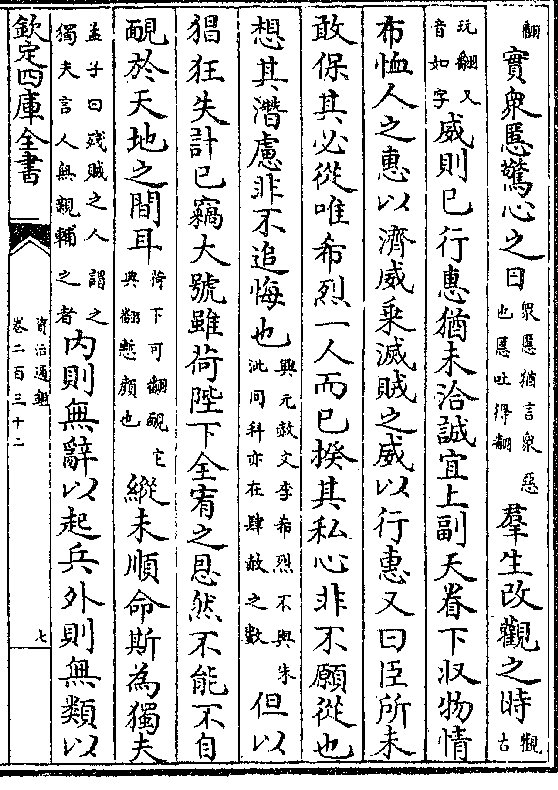 翻實衆慝驚心之日衆慝猶言衆惡也慝吐得翻羣生改觀之時觀古
玩翻又音如字威則已行惠猶未洽誠宜上副天眷下収物情
布恤人之惠以濟威乘滅賊之威以行惠又曰臣所未
敢保其必從唯希烈一人而已揆其私心非不願從也
想其潛慮非不追悔也興元赦文李希烈不與朱泚同科亦在肆赦之數但以
猖狂失計已竊大號雖荷陛下全宥之恩然不能不自
靦於天地之間耳荷下可翻靦它典翻慙顔也縱未順命斯為獨夫
孟子曰殘賊之人謂之獨夫言人無親輔之者内則無辭以起兵外則無類以
欽定四庫全書
資治通鑑
卷二百三十二
七